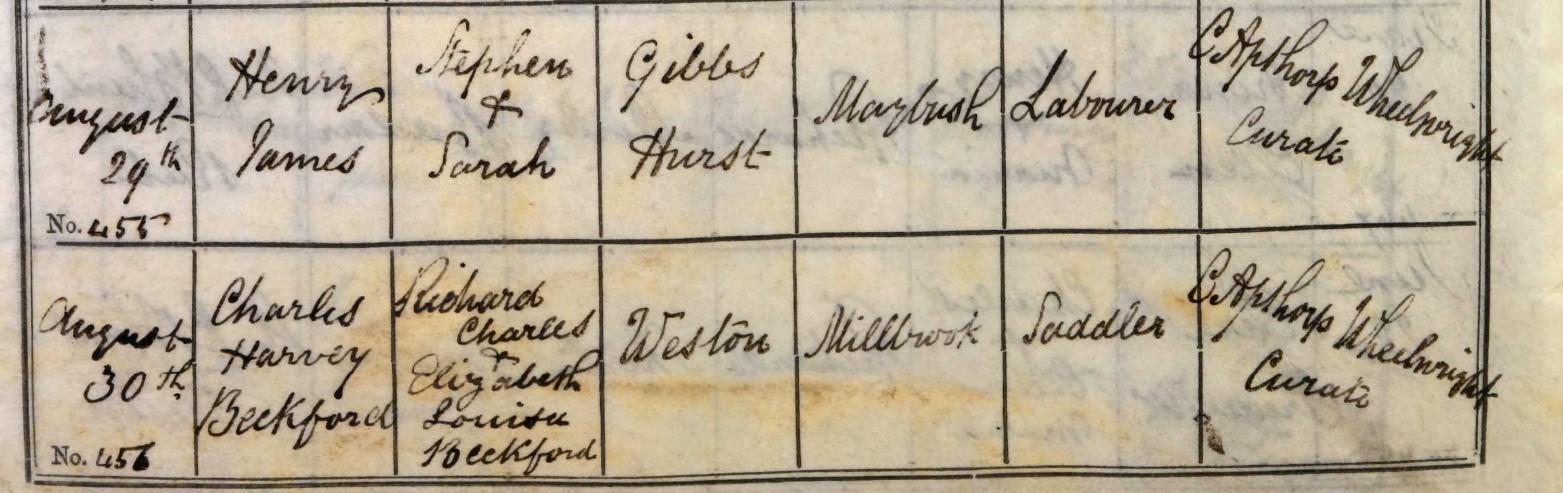 August
29th
No. 455
Henry
James
Stephen
&
Sarah
Gibbs
Hurst
Maybush
Labourer
C Apthorp Wheelwright
Curate
August
30th
No. 456
Charles
Harvey
Beckford
Richard
Charles
&
Elizabeth
Louisa
Beckford
Weston
Millbrook
Saddler
C Apthorp Wheelwright
Curate